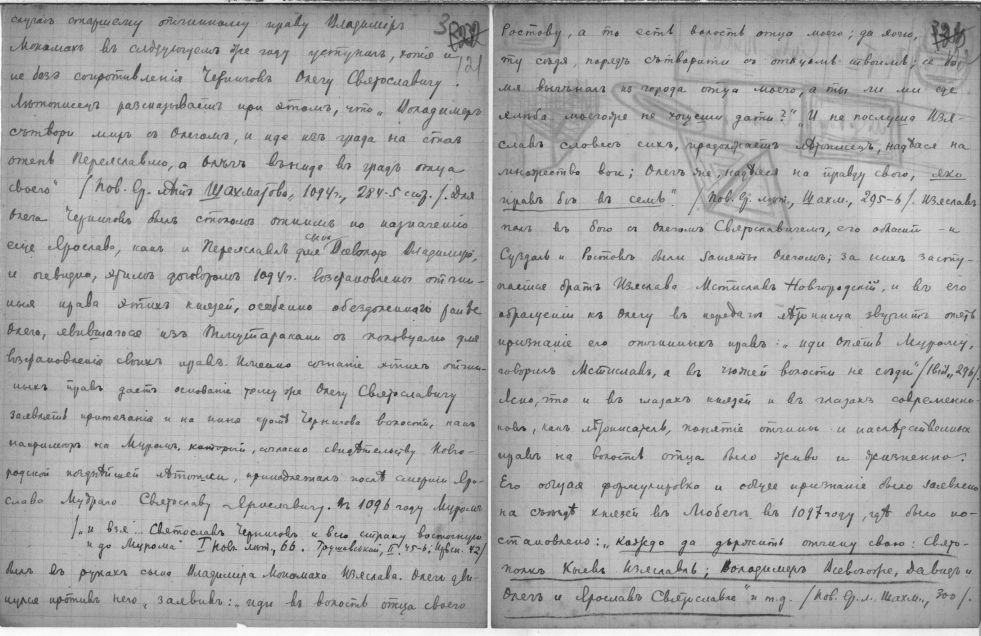 случаѣ старшему отчинному праву Владиміръ
Мономахъ въ слѣдующемъ же году уступилъ, хотя и
не безъ сопротивленія Черниговъ Олегу Святославичу.
Лѣтописецъ разсказываетъ при этомъ, что „Володимеръ
сътвори миръ съ Олегомъ, и иде изъ града на столъ
отень Переяславлю, а Олегъ въниде въ градъ отца
своего" /Пов. Вр. Лѣтъ Шахматова, 1094 г., 284-5 стр./. Для
Олега Черниговъ былъ столомъ отнимъ по назначенію
еще Ярослава, какъ и Переяславль для сына Всеволода Владиміра,
и очевидно, этимъ договоромъ 1094 г. возстановлены отчин-
ныя права этихъ князей, особенно обездоленнаго ранѣе
Олега, явившагося изъ Тмутаракани съ половцами для
возстановленія своихъ правъ. Именно сознаніе этихъ отчин-
ныхъ правъ даетъ основаніе тому же Олегу Святославичу
заявлять притязанія и на иныя кромѣ Чернигова волости, какъ
напримѣръ на Муромъ, который, согласно свидѣтельству Новго-
родской позднѣйшей лѣтописи, принадлежалъ послѣ смерти Яро-
слава Мудраго Святославу Ярославичу. Въ 1096 году Муромъ
/„и взя... Святославъ Черниговъ и всю страну восточную
и до Мурома" I Новг. лѣт., 66. Грушевскій, II 45-6; 42/
былъ въ рукахъ сына Владиміра Мономаха Изяслава. Олегъ дви-
нулся противъ него, заявивъ: „иди въ волость отца своего
3
121
Ростову, а то есть волость отца моего; да хочю,
ту сѣдя, порядъ сътворити съ отцемь твоимь; се бо
мя выгналъ из города отца моего, а ты ли ми сде
хлѣба моегоже не хощеши дати?" „И не послуша Изя-
славъ словесъ сихъ, продолжаетъ лѣтописецъ, надѣяся на
множество вои; Олегъ же, надѣяся на правду свою, яко
правъ бѣ въ семь." /Пов. Вр. лѣт., Шахм., 295-6/. Изяславъ
палъ въ бою съ Олегомъ Святославичемъ, его области - и
Суздаль и Ростовъ были заняты Олегомъ; за нихъ засту-
пается братъ Изяслава Мстиславъ Новгородскій, и въ его
обращеніи къ Олегу въ передачѣ лѣтописца звучитъ опять
признаніе его отчинныхъ правъ: „иди опять Мурому,
говоритъ Мстиславъ, а въ чюжей волости не сѣди" /ibid., 296/.
Ясно, что и въ глазахъ князей и въ глазахъ современни-
ковъ, какъ лѣтописатель, понятіе отчины и наслѣдственныхъ
правъ на волость отца было живо и жизненно.
Его общая формулировка и общее признаніе было заявлено
на съѣздѣ князей въ Любечѣ въ 1097 году, гдѣ было по-
становлено: „каждо да дьржить отчину свою: Свято-
полкъ Кыевъ Изяславль; Володимеръ Всеволоже, Давыдъ и
Олегъ и Ярославъ Святославле" и т.д. /Пов. Вр. л. Шахм., 300/.